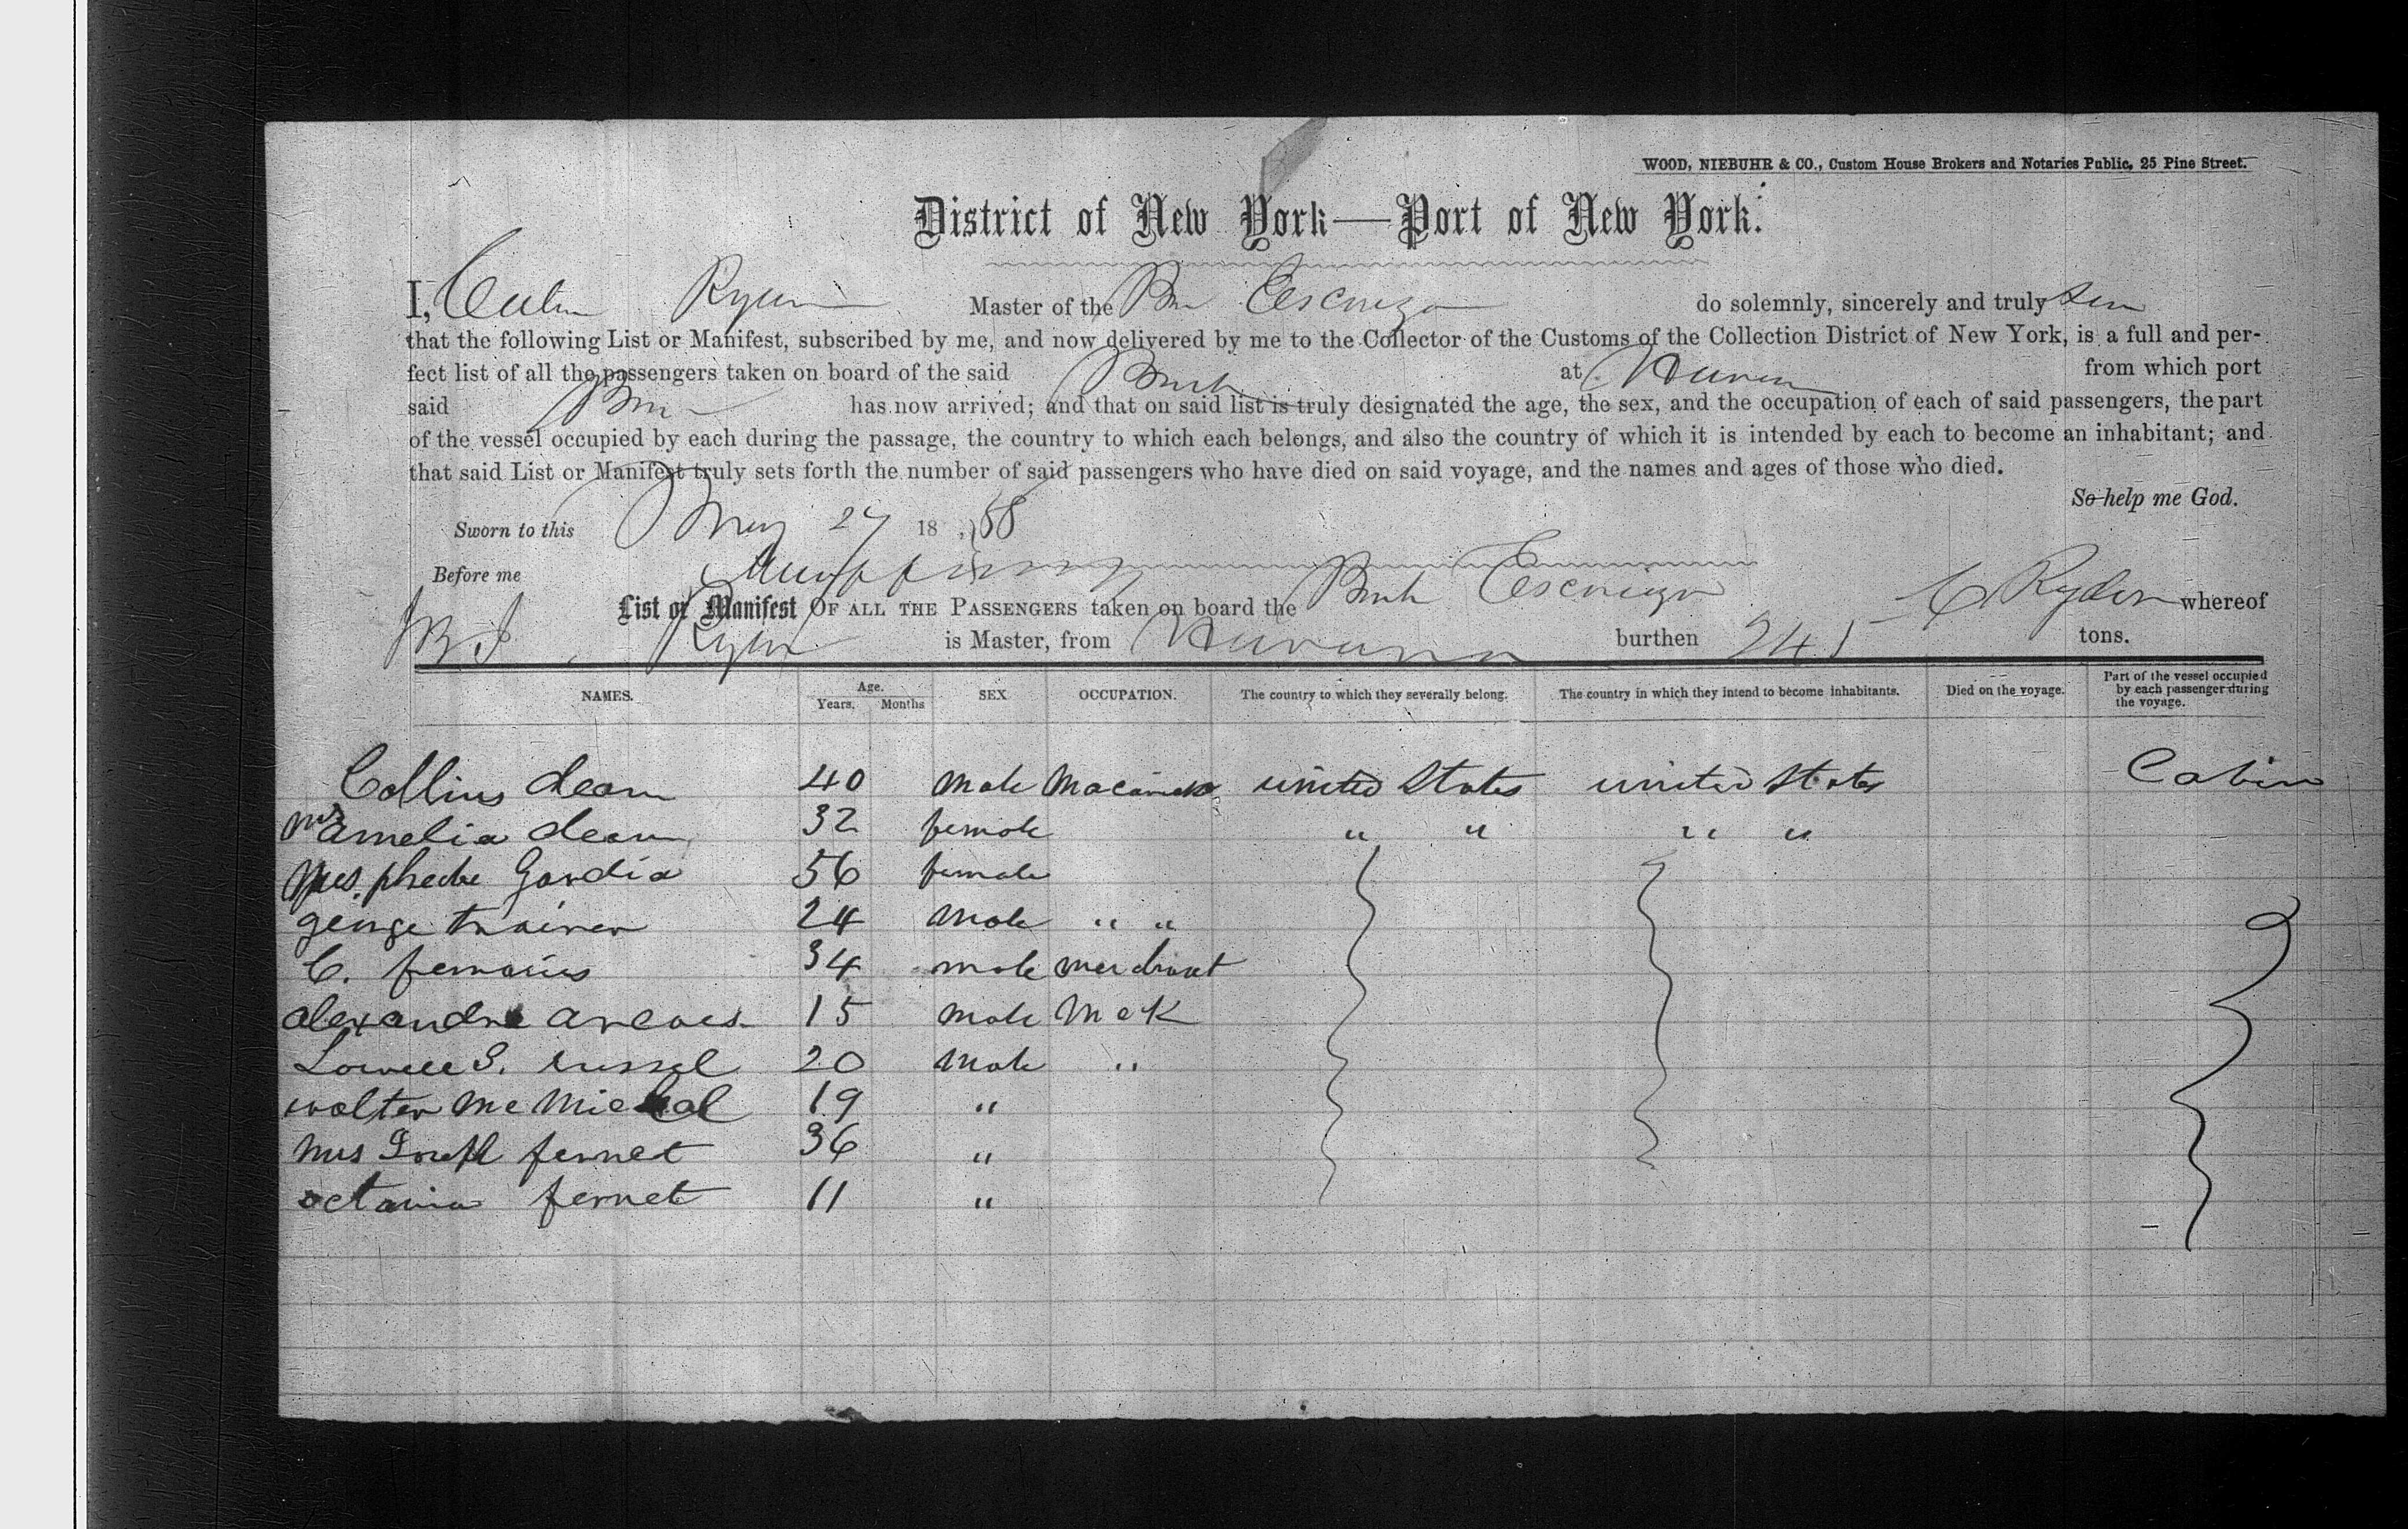 WOOD, NIEBUHR & CO., Custom House Brokers and Notaries Public, 25 Pine Street.
District of New York—Port of New York.
I, Ryder Master of the do solemnly, sincerely and truly
that the following List or Manifest, subscribed by me, and now delivered by me to the Collector of the Customs of the Collection District of New York, is a full and per-
fect list of all the passengers taken on board of the said Bark at from which port
said has now arrived; and that on said list is truly designated the age, the sex, and the occupation of each of said passengers, the part
of the vessel occupied by each during the passage, the country to which each belongs, and also the country of which it is intended by each to become an inhabitant; and
that said List or Manifest truly sets forth the number of said passengers who have died on said voyage, and the names and ages of those who died.
So help me God.
Sworn to this May 27 18
Before me
List or Manifest OF ALL THE PASSENGERS taken on board the Bark C Ryder whereof
Ryder is Master, from Havana burthen 245 tons.
NAMES. Age. Years. Months SEX OCCUPATION. The country to which they severally belong. The country in which they intend to become inhabitants. Died on the voyage. Part of the vessel occupied by each passenger during the voyage.
Collins dean 40 male united States united States Cabin
Mrs amelia dean 32 female " " " "
Mrs. phebe Gardia 56 female
george trainer 24 male " "
C. 34 male merchant
alexandre 15 male Mek
Lowell S. russel 20 male "
walter mc Michal 19 "
mrs fernet 36 "
octavia fernet 11 "